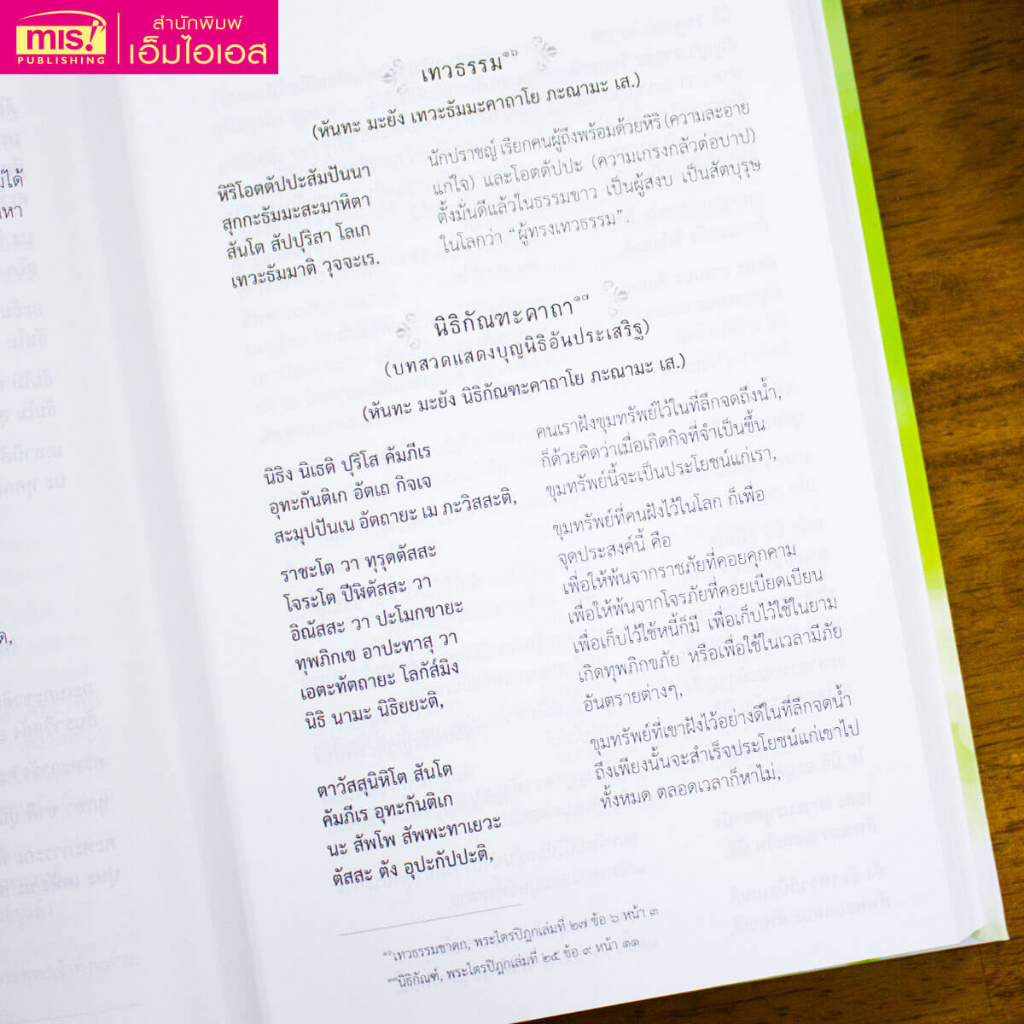 mis!
PUBLISHING
สำนักพิมพ์
เอ็มไอเอส
เทวธรรม๑๖
(หันทะ มะยัง เทวะธัมมะคาถาโย ภะณามะ เส.)
หิริโอตตัปปะสัมปันนา
สุกกะธัมมะสะมาหิตา
สันโต สัปปุริสา โลเก
เทวะธัมมาติ วุจจะเร.
นักปราชญ์ เรียกคนผู้ถึงพร้อมด้วยหิริ (ความละอาย
แก่ใจ) และโอตตัปปะ (ความเกรงกลัวต่อบาป)
ตั้งมั่นดีแล้วในธรรมขาว เป็นผู้สงบ เป็นสัตบุรุษ
ในโลกว่า “ผู้ทรงเทวธรรม”.
นิธิกัณฑะคาถา๑๗
(บทสวดแสดงบุญนิธิอันประเสริฐ)
(หันทะ มะยัง นิธิกัณฑะคาถาโย ภะณามะ เส.)
นิธิง นิเธติ ปุริโส คัมภีเร
อุทะกันติเก อัตเถ กิจเจ
สะมุปปันเน อัตถายะ เม ภะวิสสะติ,
คนเราฝังขุมทรัพย์ไว้ในที่ลึกจดถึงน้ำ,
ก็ด้วยคิดว่าเมื่อเกิดกิจที่จำเป็นขึ้น
ขุมทรัพย์นี้จะเป็นประโยชน์แก่เรา,
ราชะโต วา ทุรุตตัสสะ
โจระโต ปีฬิตัสสะ วา
อิณัสสะ วา ปะโมกขายะ
ทุพภิกเข อาปะทาสุ วา
เอตะทัตถายะ โลกัส์มิง
นิธิ นามะ นิธิยยะติ,
ขุมทรัพย์ที่คนฝังไว้ในโลก ก็เพื่อ
จุดประสงค์นี้ คือ
เพื่อให้พ้นจากราชภัยที่คอยคุกคาม
เพื่อให้พ้นจากโจรภัยที่คอยเบียดเบียน
เพื่อเก็บไว้ใช้หนี้ก็มี เพื่อเก็บไว้ใช้ในยาม
เกิดทุพภิกขภัย หรือเพื่อใช้ในเวลามีภัย
อันตรายต่างๆ,
ตาวัสสุนิหิโต สันโต
คัมภีเร อุทะกันติเก
นะ สัพโพ สัพพะทาเยวะ
ตัสสะ ตัง อุปะกัปปะติ,
ขุมทรัพย์ที่เขาฝังไว้อย่างดีในที่ลึกจดน้ำ
ถึงเพียงนั้นจะสำเร็จประโยชน์แก่เขาไป
ทั้งหมด ตลอดเวลาก็หาไม่,
๑๖เทวธรรมชาดก, พระไตรปิฎกเล่มที่ ๒๗ ข้อ ๖ หน้า ๓
๑๗นิธิกัณฑ์, พระไตรปิฎกเล่มที่ ๒๕ ข้อ ๙ หน้า ๑๑